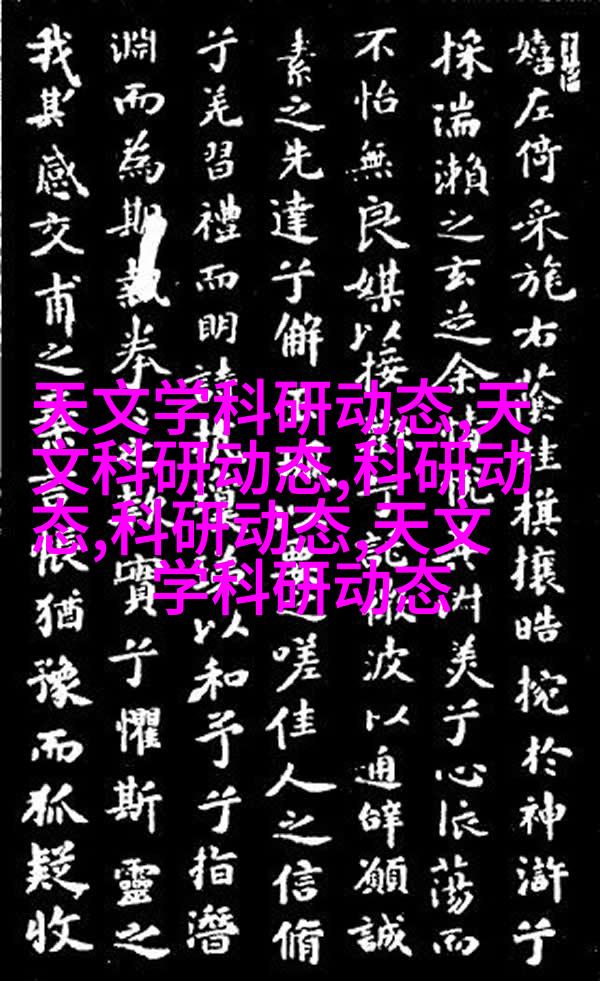 嬉左倚采旄右蔭桂棋攘晧捥於神滸兮
採湍瀨之玄芝余情悅其淑美兮心依蕩而
不怡無良媒以接歡兮託微波以通辭願誠
素之先達兮解之嗟佳人之信脩
兮羌習禮而明詩抗以和予兮指潛
淵而為期執拳之款實兮懼斯靈之
我其感交甫之棄言悵猶豫而狐疑收
天文学科研动态,天
文科研动态,科研动
态,科研动态,天文
学科研动态